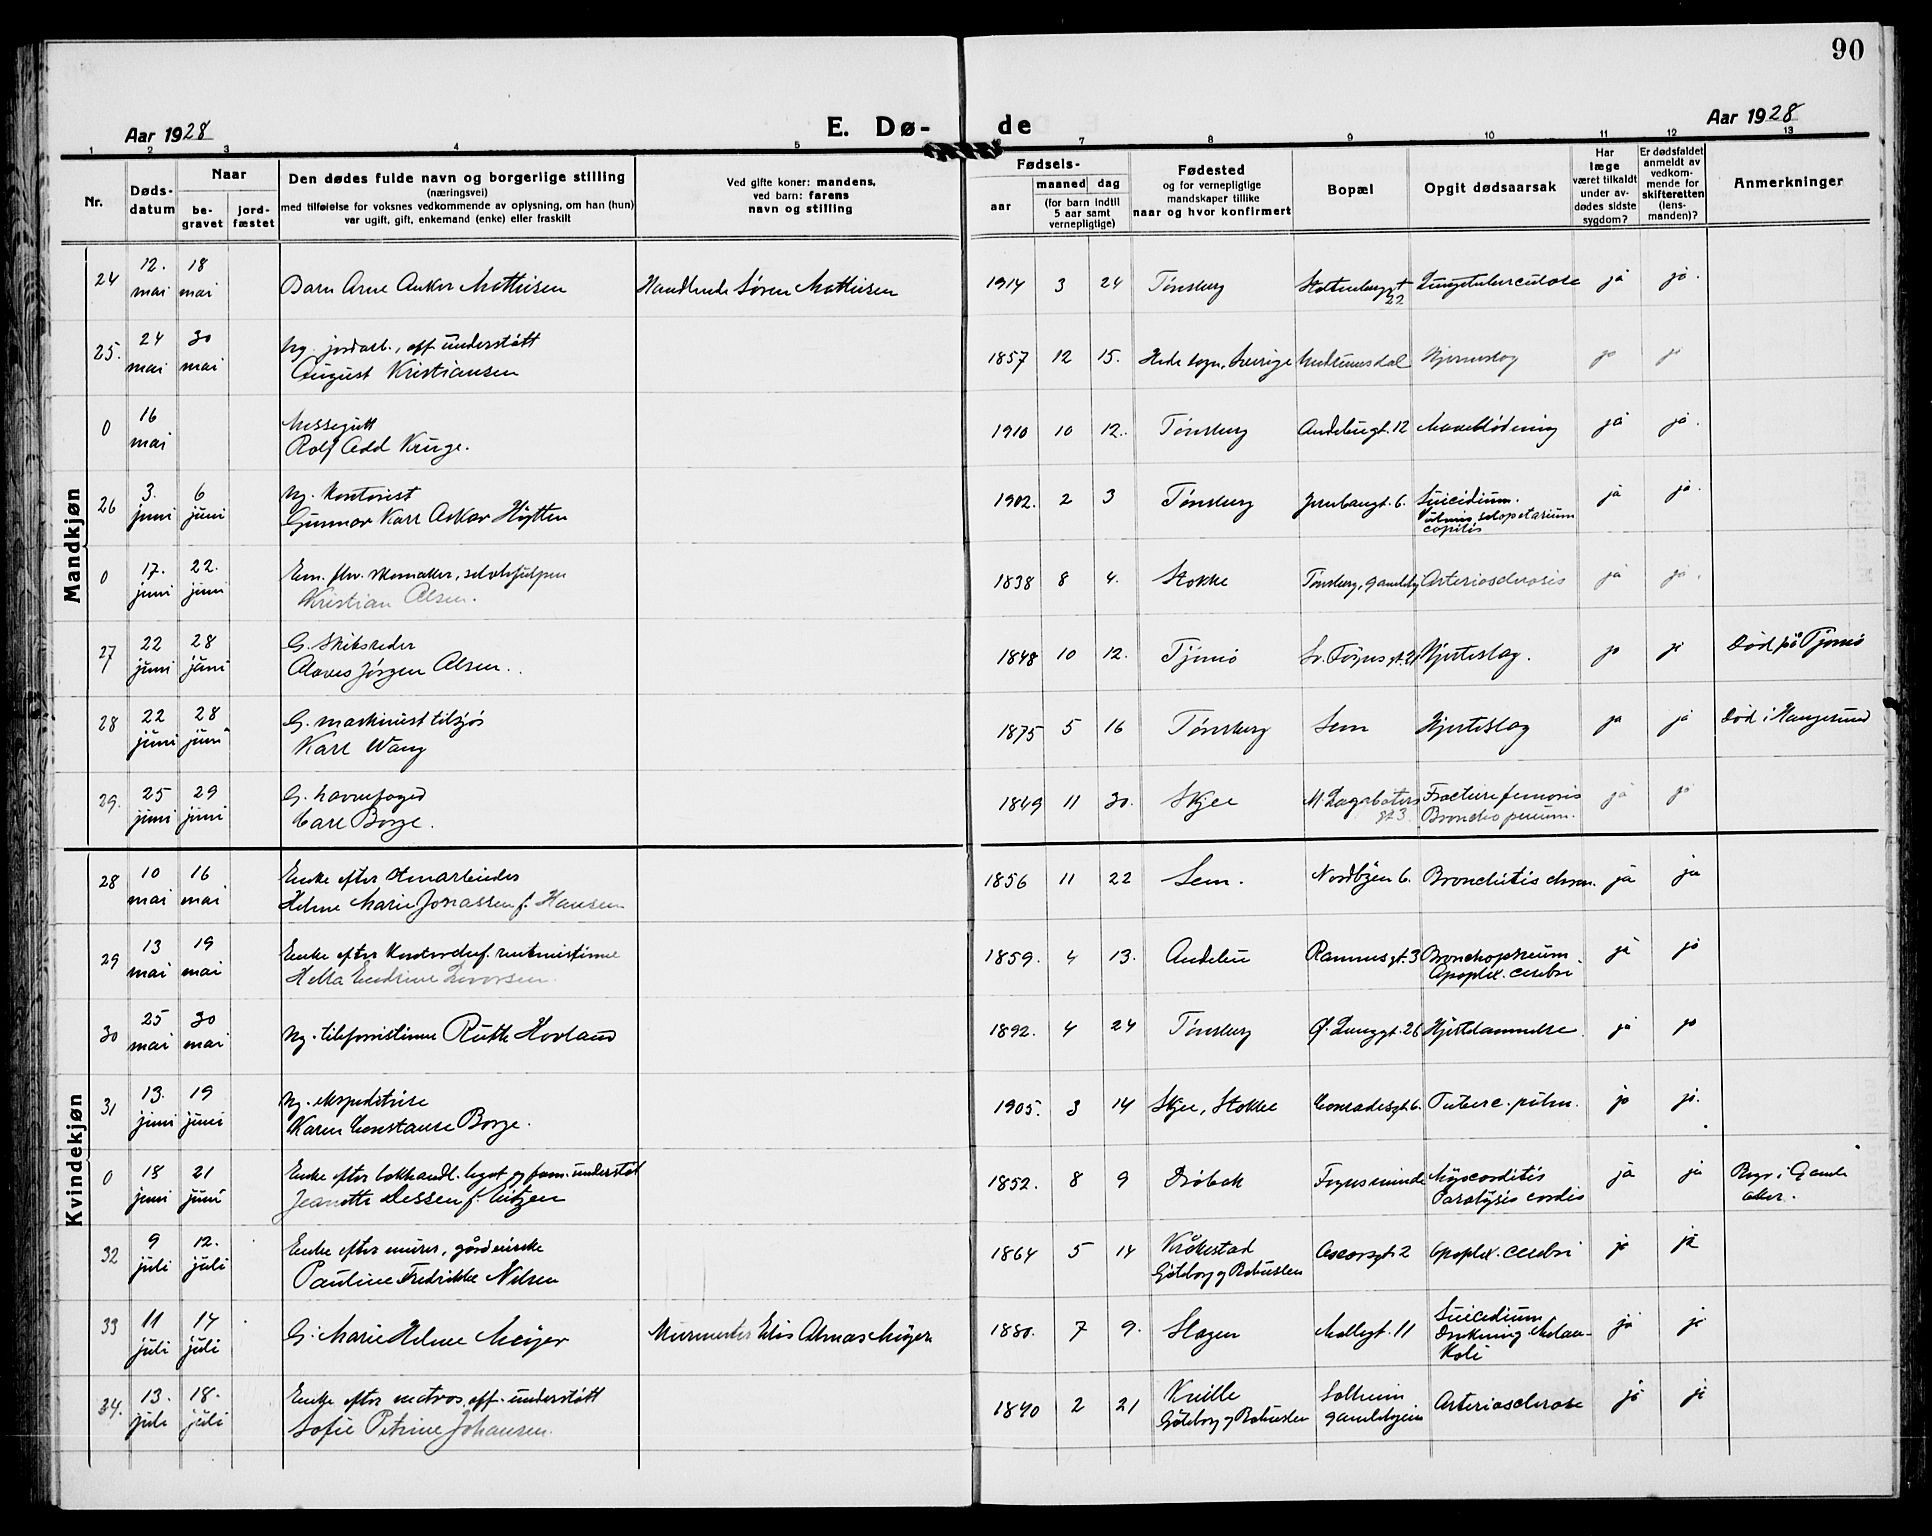 90
Aar 1928
E. Dø-
de
Aar 1928
1 2 3 4 5 7 8 9 10 11 12 13
Nr.
Døds-
datum
Naar
be-
gravet
jord-
fæstet
Den dødes fulde navn og borgerlige stilling
(næringsvei)
med tilføielse for voksnes vedkommende av oplysning, om han (hun)
var ugift, gift, enkemand (enke) eller fraskilt
Ved gifte koner: mandens,
ved barn: farens
navn og stilling
Fødsels-
aar
maaned dag
(for barn indtil
5 aar samt
vernepligtige)
Fødested
og for vernepligtige
mandskaper tillike
naar og hvor konfirmert
Bopæl
Opgit dødsaarsak
Har
læge
været tilkaldt
under av-
dødes sidste
sygdom?
Er dødsfaldet
anmeldt av
vedkom-
mende for
skifteretten
(lens-
manden)?
Anmerkninger
Mandkjøn
24 12. mai 18 mai Barn Arne Anker Mathisen Handlende Søren Mathisen 1914 3 24 Tønsberg Stoltenberggt 22 Lungetuberculose ja ja.
25. 24 mai 30 mai Ug. jordarb., off. understøtt
August Kristiansen 1857 12 15. Hede sogn, Sverige Hjerneslag ja ja
0 16 mai Messegutt
Rolf Odd Kruge. 1910 10 12. Tønsberg Andebugt. 12 Maveblødning ja ja.
26 3. juni 6 juni Ug. Kontorist
Gunnar Karl Oskar Høytten 1902. 2 3 Tønsberg Jernbanegt. 6. Suicidium.
Vulnus sclopetarium
capitis ja ja.
0 17. juni 22. juni Em. fhv. skomaker, selvhjulpen
Kristian Olsen. 1838 8 4. Stokke Tønsberg, gamleby Arteriosclerosis ja ja.
27 22 juni 28 juni G. Skibsreder
Olaves Jørgen Olsen. 1848 10 12. Tjømø Hjerteslag. ja ja Død på Tjømø
28 22 juni 28 juni G. maskinist tilsjøs
Karl Wang 1875 5 16 Tønsberg Sem Hjerteslag ja ja Død i Haugesund
29. 25 juni 29 juni G. havnefoged
Carl Borge. 1849 11 30. Skjee M. Lagabøters
gt 3. Fracture femoris
Bronchopneum. ja ja
Kvindekjøn
28 10 mai 16 mai Enke efter
Helene Marie Jonassen f. Hansen 1856 11 22 Sem. Nordbyen 6. Bronchitis chron. ja ja
29 13 mai 19 mai Enke efter
Helka Iversen. 1859. 4 13. Andebu Ramnesgt. 3 Bronchopneum.
Apoplex. cerebri ja ja
30 25 mai 30 mai Ug. telefonistinne Ruth Hovland 1892. 4 24 Tønsberg Ø. Langgt. 26 Hjertelammelse. ja ja
31 13. juni 19 juni Ug. ekspeditrise
Karen Constanse Borge. 1905. 3 14 Skjee, Stokke Conradisgt. 6. Tuberc. pulm. ja ja.
0 18 juni 21 juni Enke efter bokhandl. legat og fam. understøt
Jeanette Dessen f. Eitzen 1852. 8 9 Drøbak Foynsminde Myocarditis
Paralysis cordis ja ja Begr. i Gamle
Aker.
32 9 juli 12. juli Enke efter murer, gårdeierske
Pauline Fredrikke Nilsen 1864 5 14 Krokestad
Gøteborg og Bohuslen Oscarsgt. 2 Apoplex. cerebri ja ja
33 11 juli 14 juli G. Marie Helene Meyer Murmester Elis Almas Meyer 1880. 7 9. Slagen Møllegt. 11 Suicidium
Drukning Melan-
koli ja ja
34. 13. juli 18. juli Enke efter matros, off. understøtt
Sofie Petrine Johansen. 1840 2 21 Kville
Gøteborg og Bohuslen Solheim
gamlebyen Arteriosclerose ja ja